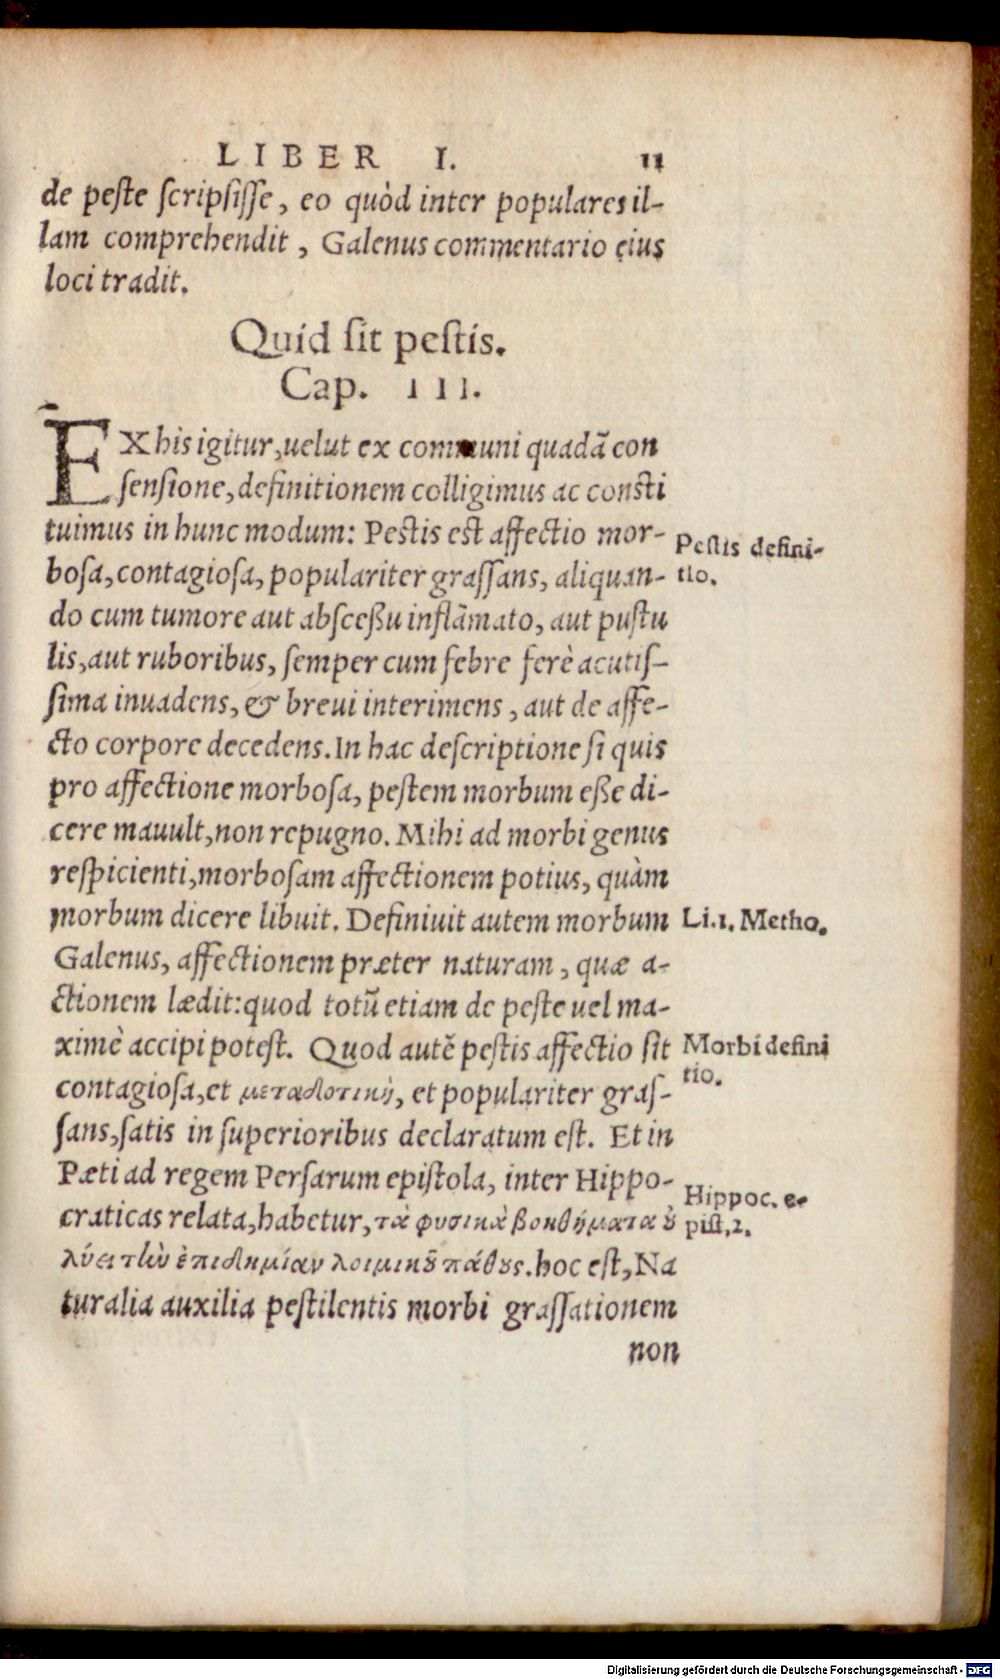 LIBER I. 11
de peste scripsisse, eo quòd inter populares il-
lam comprehendit, Galenus commentario eius
loci tradit.
Quid sit pestis.
Cap. III.
EX his igitur, uelut ex communi quadã con
sensione, definitionem colligimus ac consti
tuimus in hunc modum: Pestis est affectio mor-
bosa, contagiosa, populariter grassans, aliquan-
do cum tumore aut abscessu inflãmato, aut pustu
lis, aut ruboribus, semper cum febre ferè acutis-
sima inuadens, & breui interimens, aut de affe-
cto corpore decedens. In hac descriptione si quis
pro affectione morbosa, pestem morbum esse di-
cere mauult, non repugno. Mihi ad morbi genus
respicienti, morbosam affectionem potius, quàm
morbum dicere libuit. Definiuit autem morbum
Galenus, affectionem præter naturam, quæ a-
ctionem lædit: quod totũ etiam de peste uel ma-
ximè accipi potest. Quod autẽ pestis affectio sit
contagiosa, et μεταδοτικὴ, et populariter gras-
sans, satis in superioribus declaratum est. Et in
Pæti ad regem Persarum epistola, inter Hippo-
craticas relata, habetur, τὰ φυσικὰ βοηθήματα οὐ
λύει τὴν ἐπιδημίαν λοιμικοῦ πάθους. hoc est, Na
turalia auxilia pestilentis morbi grassationem
non
Pestis defini-
tio.
Li.1. Metho.
Morbi defini
tio.
Hippoc. e-
pist.2.
Digitalisierung gefördert durch die Deutsche Forschungsgemeinschaft - DFG